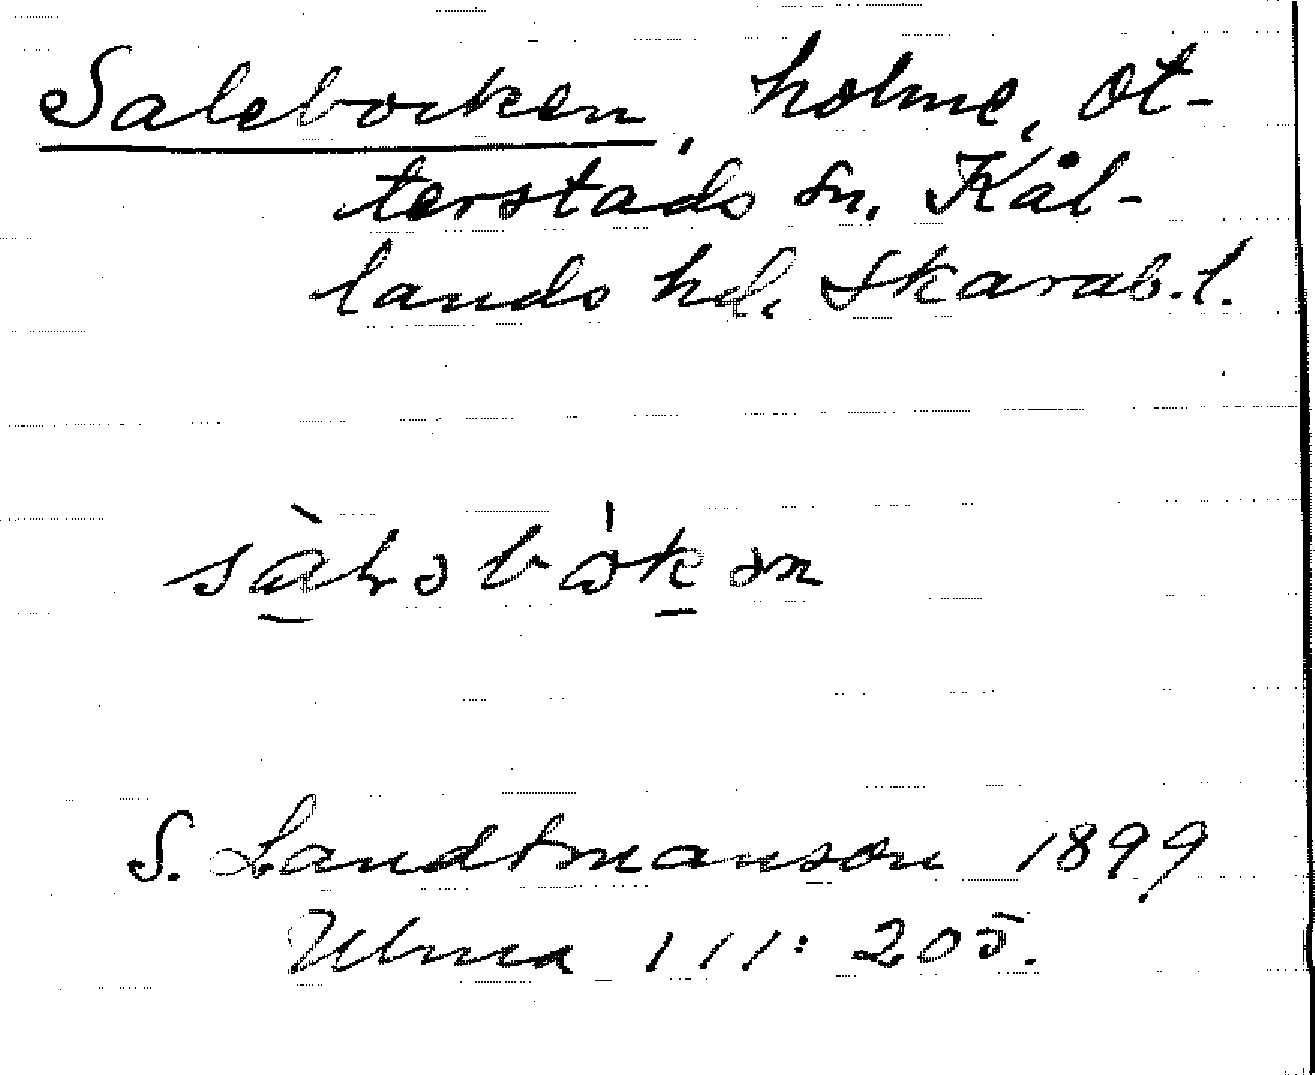 Salebocken, holme, Ot-
terstads sn, Kål-
lands hd, Skarab.l.
sàləbòkən
S. Landtmanson 1899
Ulma 111: 205.